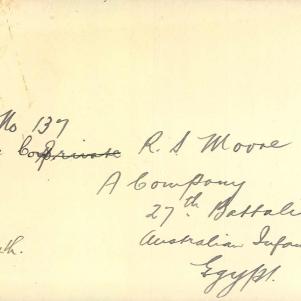 No 137
Corp ~~Private~~ R. S. Moore
A Company
27th Battali
Australian Infan
Egypt.
th.